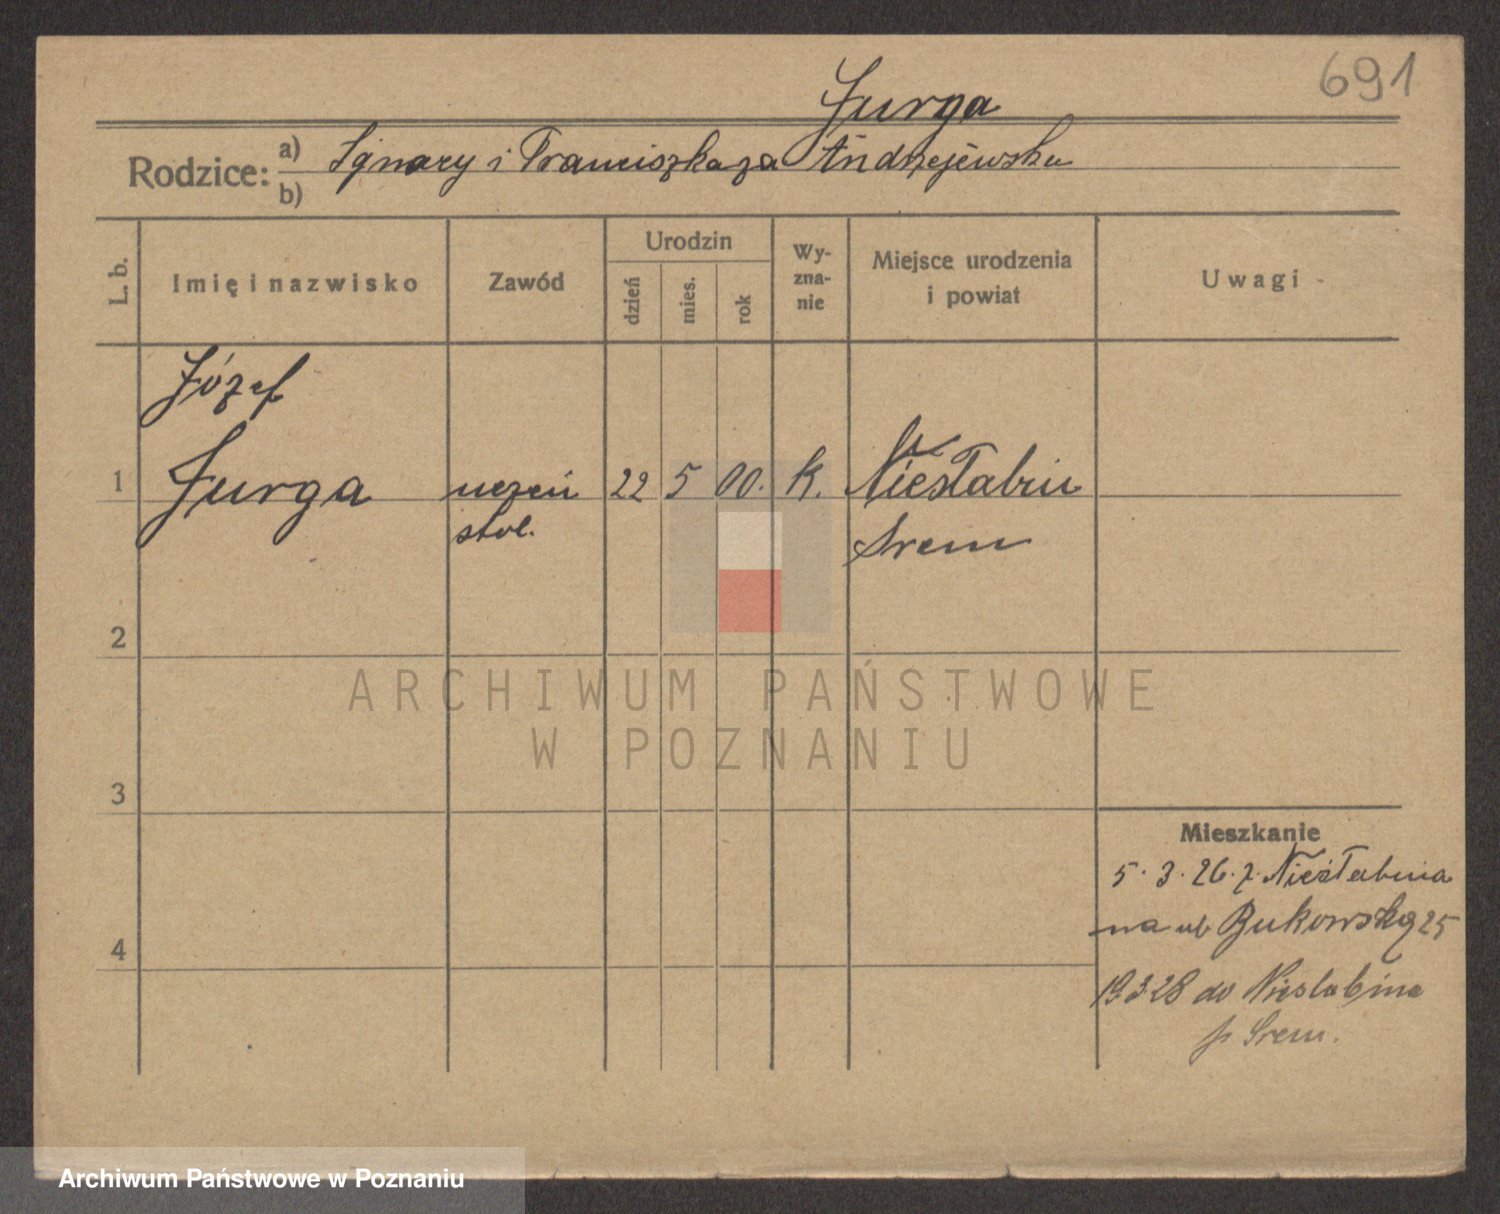 691
Jurga
Rodzice: a) Ignacy i Franciszka za Andrzejewska
b)
L. b.
Imię i nazwisko
Zawód
Urodzin
dzień
mies.
rok
Wy-
zna-
nie
Miejsce urodzenia
i powiat
Uwagi
Józef
1 Jurga uczeń 22 5 00. k. Niesłabin
stol. Srem
2
3
4
Mieszkanie
5. 3. 26. z. Niesłabina
na ul Bukowską 25
19 3 28 do Nieslabina
p Srem.
ARCHIWUM PAŃSTWOWE
W POZNANIU
Archiwum Państwowe w Poznaniu